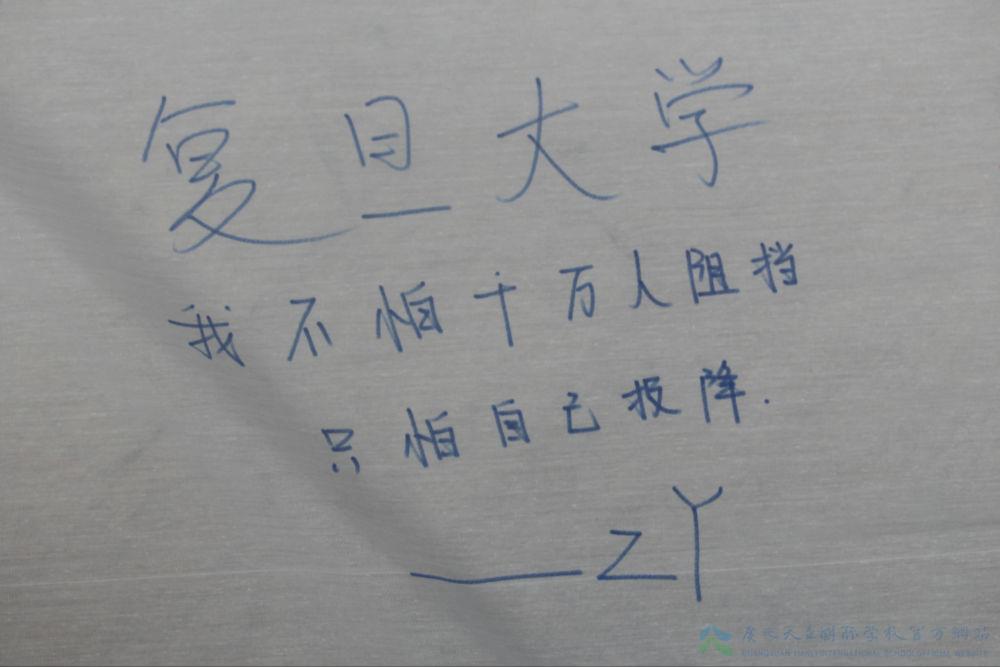 复旦大学
我不怕千万人阻挡
只怕自己投降.
——ZY
广元天立国际学校官方网站
GUANGYUAN TIANLI INTERNATIONAL SCHOOL OFFICIAL WEBSITE